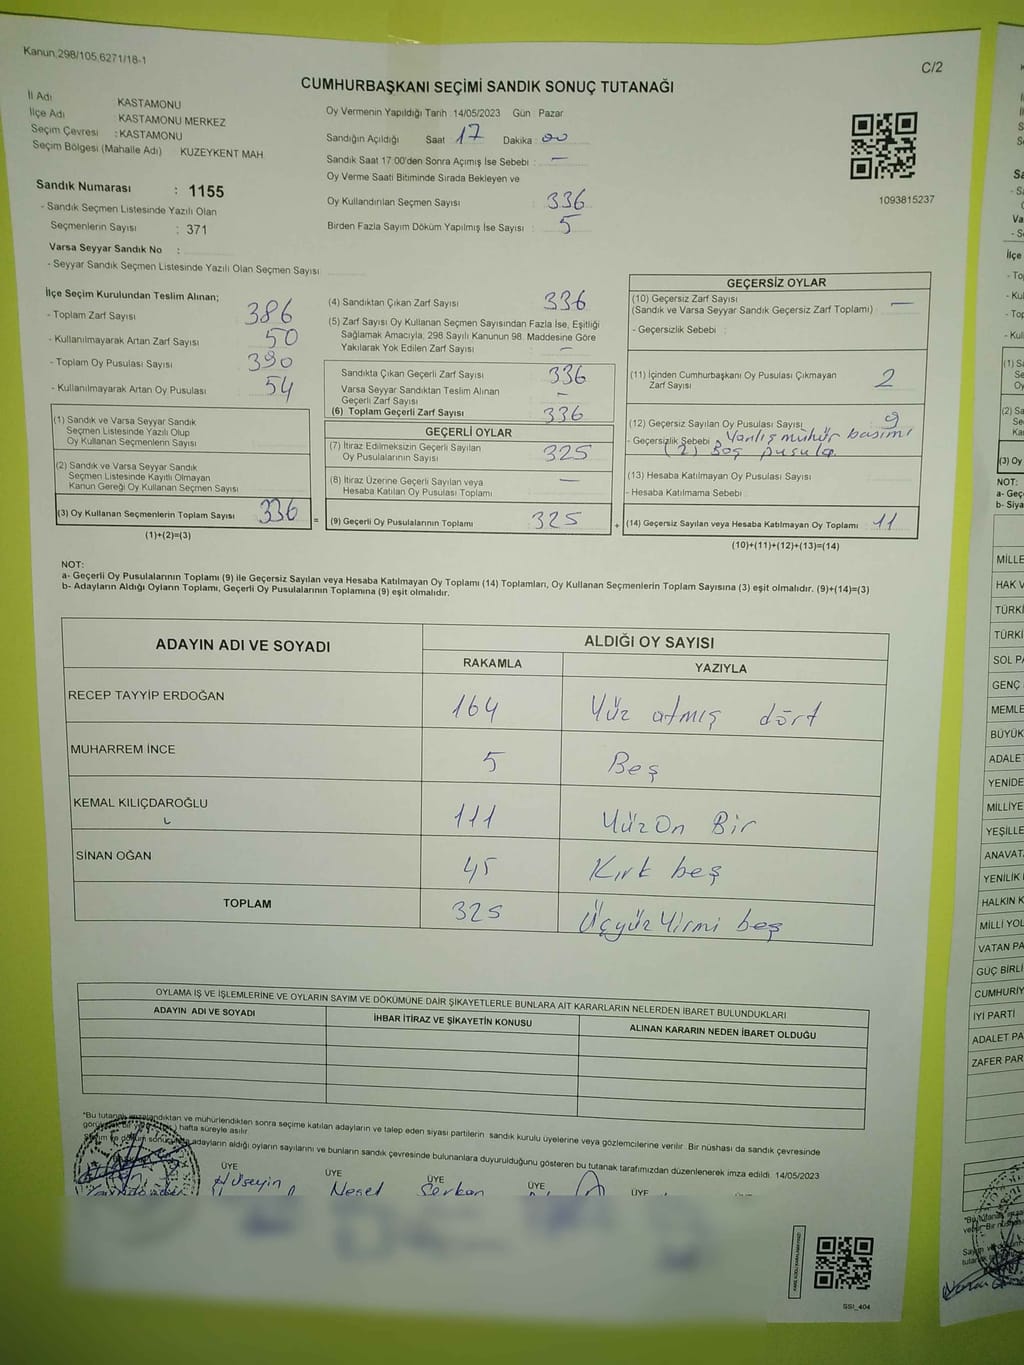 Kanun.298/105,6271/18-1
C/2
CUMHURBAŞKANI SEÇİMİ SANDIK SONUÇ TUTANAĞI
İl Adı KASTAMONU
İlçe Adı : KASTAMONU MERKEZ
Seçim Çevresi : KASTAMONU
Seçim Bölgesi (Mahalle Adı) KUZEYKENT MAH
Sandık Numarası : 1155
- Sandık Seçmen Listesinde Yazılı Olan
Seçmenlerin Sayısı : 371
Varsa Seyyar Sandık No :
- Seyyar Sandık Seçmen Listesinde Yazılı Olan Seçmen Sayısı
Oy Vermenin Yapıldığı Tarih : 14/05/2023 Gün : Pazar
Sandığın Açıldığı Saat 17 Dakika : 00
Sandık Saat 17:00'den Sonra Açımış İse Sebebi : —
Oy Verme Saati Bitiminde Sırada Bekleyen ve
Oy Kullandırılan Seçmen Sayısı : 336
Birden Fazla Sayım Döküm Yapılmış İse Sayısı : 5
1093815237
İlçe Seçim Kurulundan Teslim Alınan;
- Toplam Zarf Sayısı 386
- Kullanılmayarak Artan Zarf Sayısı 50
- Toplam Oy Pusulası Sayısı 390
- Kullanılmayarak Artan Oy Pusulası 54
(1) Sandık ve Varsa Seyyar Sandık
Seçmen Listesinde Yazılı Olup
Oy Kullanan Seçmenlerin Sayısı
(2) Sandık ve Varsa Seyyar Sandık
Seçmen Listesinde Kayıtlı Olmayan
Kanun Gereği Oy Kullanan Seçmen Sayısı
(3) Oy Kullanan Seçmenlerin Toplam Sayısı 336
(1)+(2)=(3)
(4) Sandıktan Çıkan Zarf Sayısı 336
(5) Zarf Sayısı Oy Kullanan Seçmen Sayısından Fazla İse, Eşitliği
Sağlamak Amacıyla, 298 Sayılı Kanunun 98. Maddesine Göre
Yakılarak Yok Edilen Zarf Sayısı —
Sandıkta Çıkan Geçerli Zarf Sayısı 336
Varsa Seyyar Sandıktan Teslim Alınan
Geçerli Zarf Sayısı —
(6) Toplam Geçerli Zarf Sayısı 336
GEÇERLİ OYLAR
(7) İtiraz Edilmeksizin Geçerli Sayılan
Oy Pusulalarının Sayısı 325
(8) İtiraz Üzerine Geçerli Sayılan veya
Hesaba Katılan Oy Pusulası Toplamı —
= (9) Geçerli Oy Pusulalarının Toplamı 325
GEÇERSİZ OYLAR
(10) Geçersiz Zarf Sayısı
(Sandık ve Varsa Seyyar Sandık Geçersiz Zarf Toplamı) —
- Geçersizlik Sebebi :
(11) İçinden Cumhurbaşkanı Oy Pusulası Çıkmayan
Zarf Sayısı 2
(12) Geçersiz Sayılan Oy Pusulası Sayısı 9
- Geçersizlik Sebebi : Yanlış mühür basımı
(2) Boş pusula
(13) Hesaba Katılmayan Oy Pusulası Sayısı
- Hesaba Katılmama Sebebi
+ (14) Geçersiz Sayılan veya Hesaba Katılmayan Oy Toplamı 11
(10)+(11)+(12)+(13)=(14)
NOT:
a- Geçerli Oy Pusulalarının Toplamı (9) ile Geçersiz Sayılan veya Hesaba Katılmayan Oy Toplamı (14) Toplamları, Oy Kullanan Seçmenlerin Toplam Sayısına (3) eşit olmalıdır. (9)+(14)=(3)
b- Adayların Aldığı Oyların Toplamı, Geçerli Oy Pusulalarının Toplamına (9) eşit olmalıdır.
ADAYIN ADI VE SOYADI ALDIĞI OY SAYISI
RAKAMLA YAZIYLA
RECEP TAYYİP ERDOĞAN 164 Yüz atmış dört
MUHARREM İNCE 5 Beş
KEMAL KILIÇDAROĞLU 111 YüzOn Bir
SİNAN OĞAN 45 Kırk beş
TOPLAM 325 ÜçyüzYirmi beş
OYLAMA İŞ VE İŞLEMLERİNE VE OYLARIN SAYIM VE DÖKÜMÜNE DAİR ŞİKAYETLERLE BUNLARA AİT KARARLARIN NELERDEN İBARET BULUNDUKLARI
ADAYIN ADI VE SOYADI İHBAR İTİRAZ VE ŞİKAYETİN KONUSU ALINAN KARARIN NEDEN İBARET OLDUĞU
"Bu tutanak imzalandıktan ve mühürlendikten sonra seçime katılan adayların ve talep eden siyasi partilerin sandık kurulu üyelerine veya gözlemcilerine verilir. Bir nüshası da sandık çevresinde
hafta süreyle asılır.
adayların aldığı oyların sayılarını ve bunların sandık çevresinde bulunanlara duyurulduğunu gösteren bu tutanak tarafımızdan düzenlenerek imza edildi. 14/05/2023
ÜYE ÜYE ÜYE ÜYE ÜYE
Hüseyin Serkan
SSI_404
MİLLE
HAK V
TÜRKİ
TÜRKİ
SOL PA
GENÇ
MEMLE
BÜYÜK
ADALET
YENİDE
MİLLİYE
YEŞİLLE
ANAVATA
YENİLİK
HALKIN K
MİLLİ YOL
VATAN PA
GÜÇ BİRLİ
CUMHURİY
İYİ PARTİ
ADALET PA
ZAFER PAR